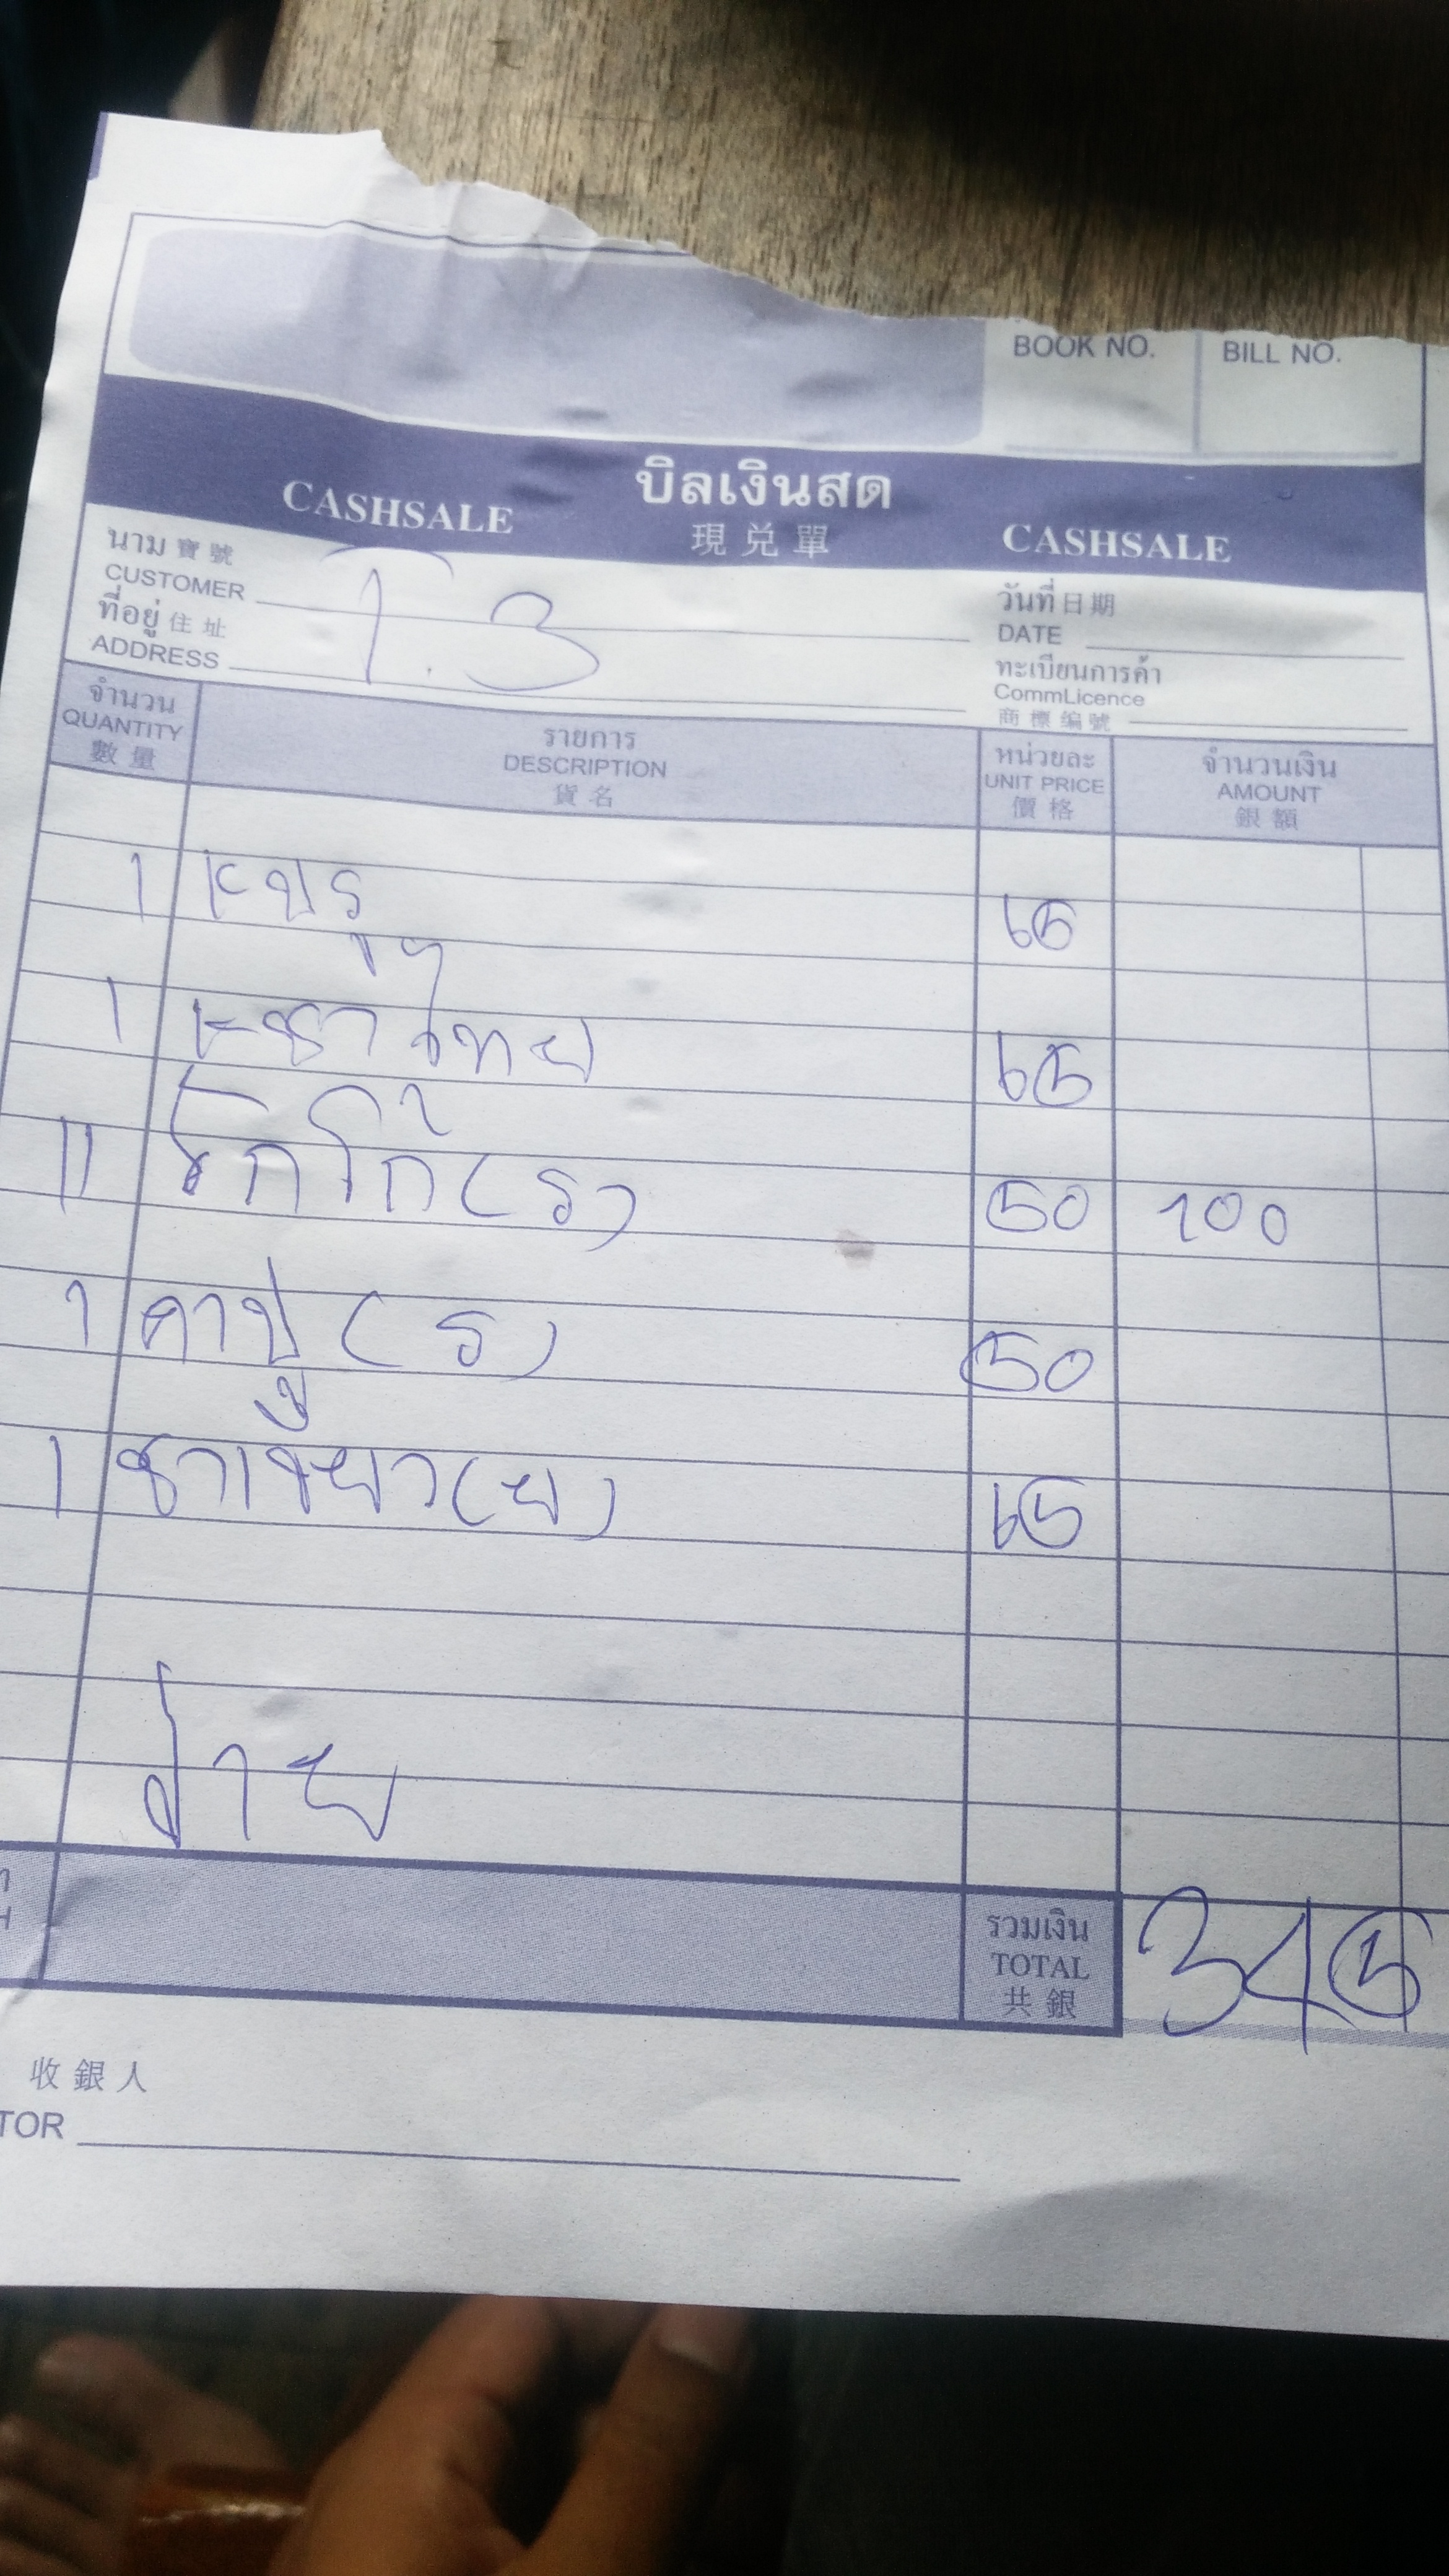 BOOK NO. BILL NO.
CASHSALE บิลเงินสด CASHSALE
現兌單
นาม 寶號
CUSTOMER
T.3
วันที่ 日期
DATE
ที่อยู่ 住址
ADDRESS
ทะเบียนการค้า
CommLicence
商標編號
จำนวน รายการ หน่วยละ จำนวนเงิน
QUANTITY DESCRIPTION UNIT PRICE AMOUNT
數量 貨名 價格 銀額
1 65
1 ชาไทย 65
11 โกโก้ (ร) 50 100
1 คาปู (ร) 50
1 ชาเขียว (ย) 65
จ่าย
รวมเงิน
TOTAL 345
共銀
收銀人
TOR